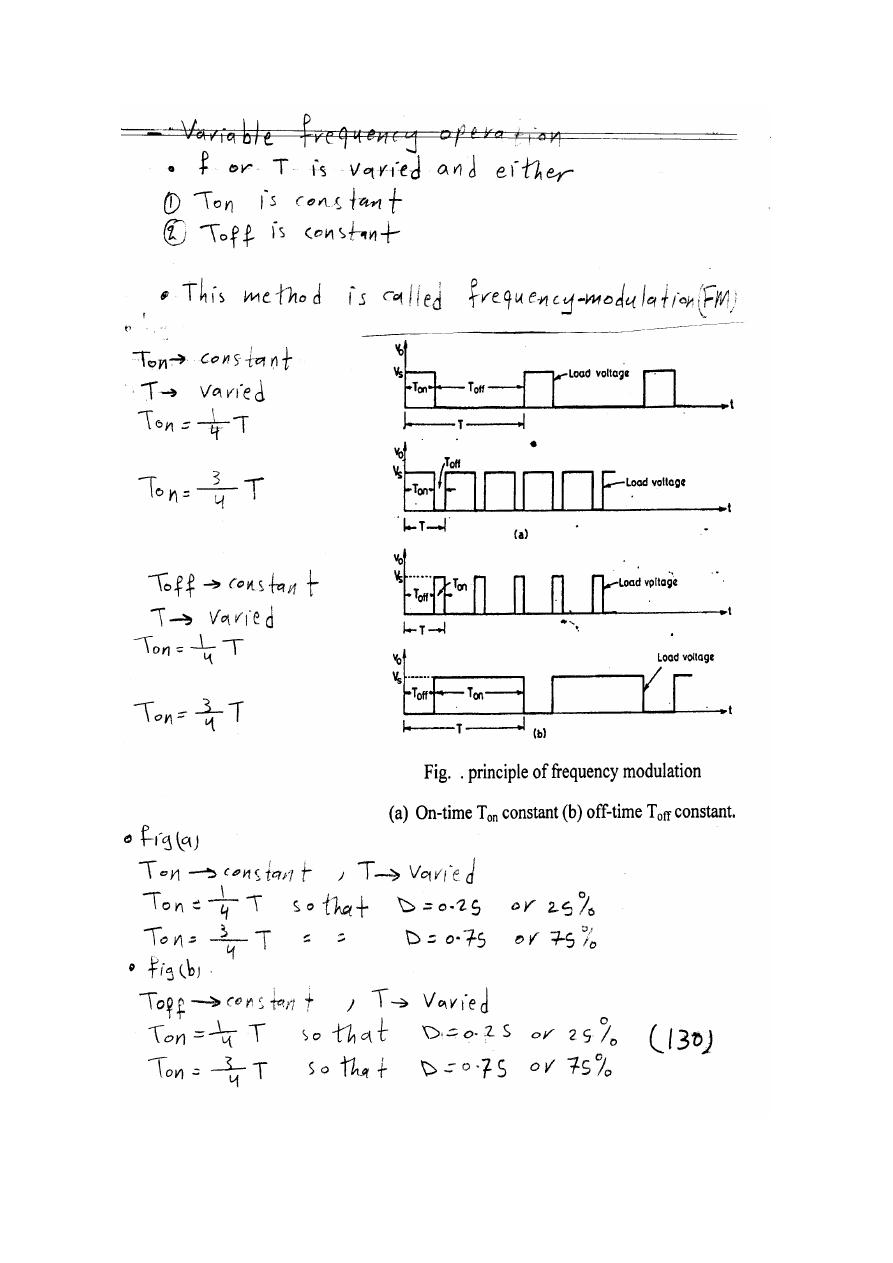 - Variable frequency operation
• f or T is varied and either
① Ton is constant
② Toff is constant
• This method is called frequency-modulation (FM)
Ton → constant
T → varied
Ton = 1/4 T
Ton = 3/4 T
Vo
Vs
Ton
Toff
Load voltage
t
T
Vo
Vs
Toff
Ton
Load voltage
t
T
(a)
Toff → constant
T → varied
Ton = 1/4 T
Ton = 3/4 T
Vo
Vs
Toff
Ton
Load voltage
t
T
Vo
Vs
Toff
Ton
Load voltage
t
T
(b)
Fig. . principle of frequency modulation
(a) On-time Ton constant (b) off-time Toff constant.
• fig(a)
Ton → constant , T → Varied
Ton = 1/4 T so that D = 0.25 or 25%
Ton = 3/4 T = = D = 0.75 or 75%
• fig(b).
Toff → constant , T → Varied
Ton = 1/4 T so that D = 0.25 or 25% (130)
Ton = 3/4 T so that D = 0.75 or 75%